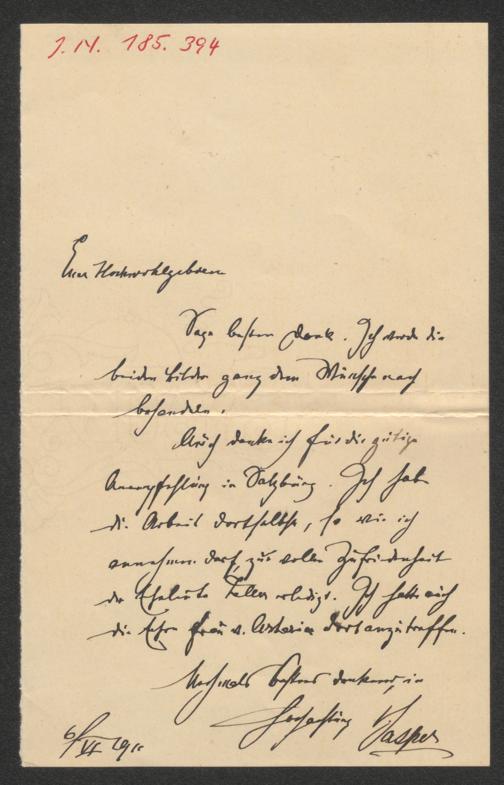 J.N. 185.394
Euer Hochwohlgeboren
Sage besten Dank. Ich werde die
beiden Bilder ganz dem Wunsche nach
behandeln.
Auch danke ich für die gütige
Anempfehlung in Salzburg. Ich habe
die Arbeit dortselbst, so wie ich
annehmen darf, zur vollen Zufriedenheit
der Eheleute erledigt. Ich hatte auch
die Ehre Frau v. dort anzutreffen.
Nochmals bestens dankend, in
Hochachtung Jasper
6/VI 191